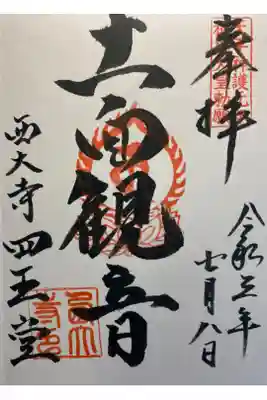 奉拝
令和三年
七月八日
十一面観音
西大寺四王堂